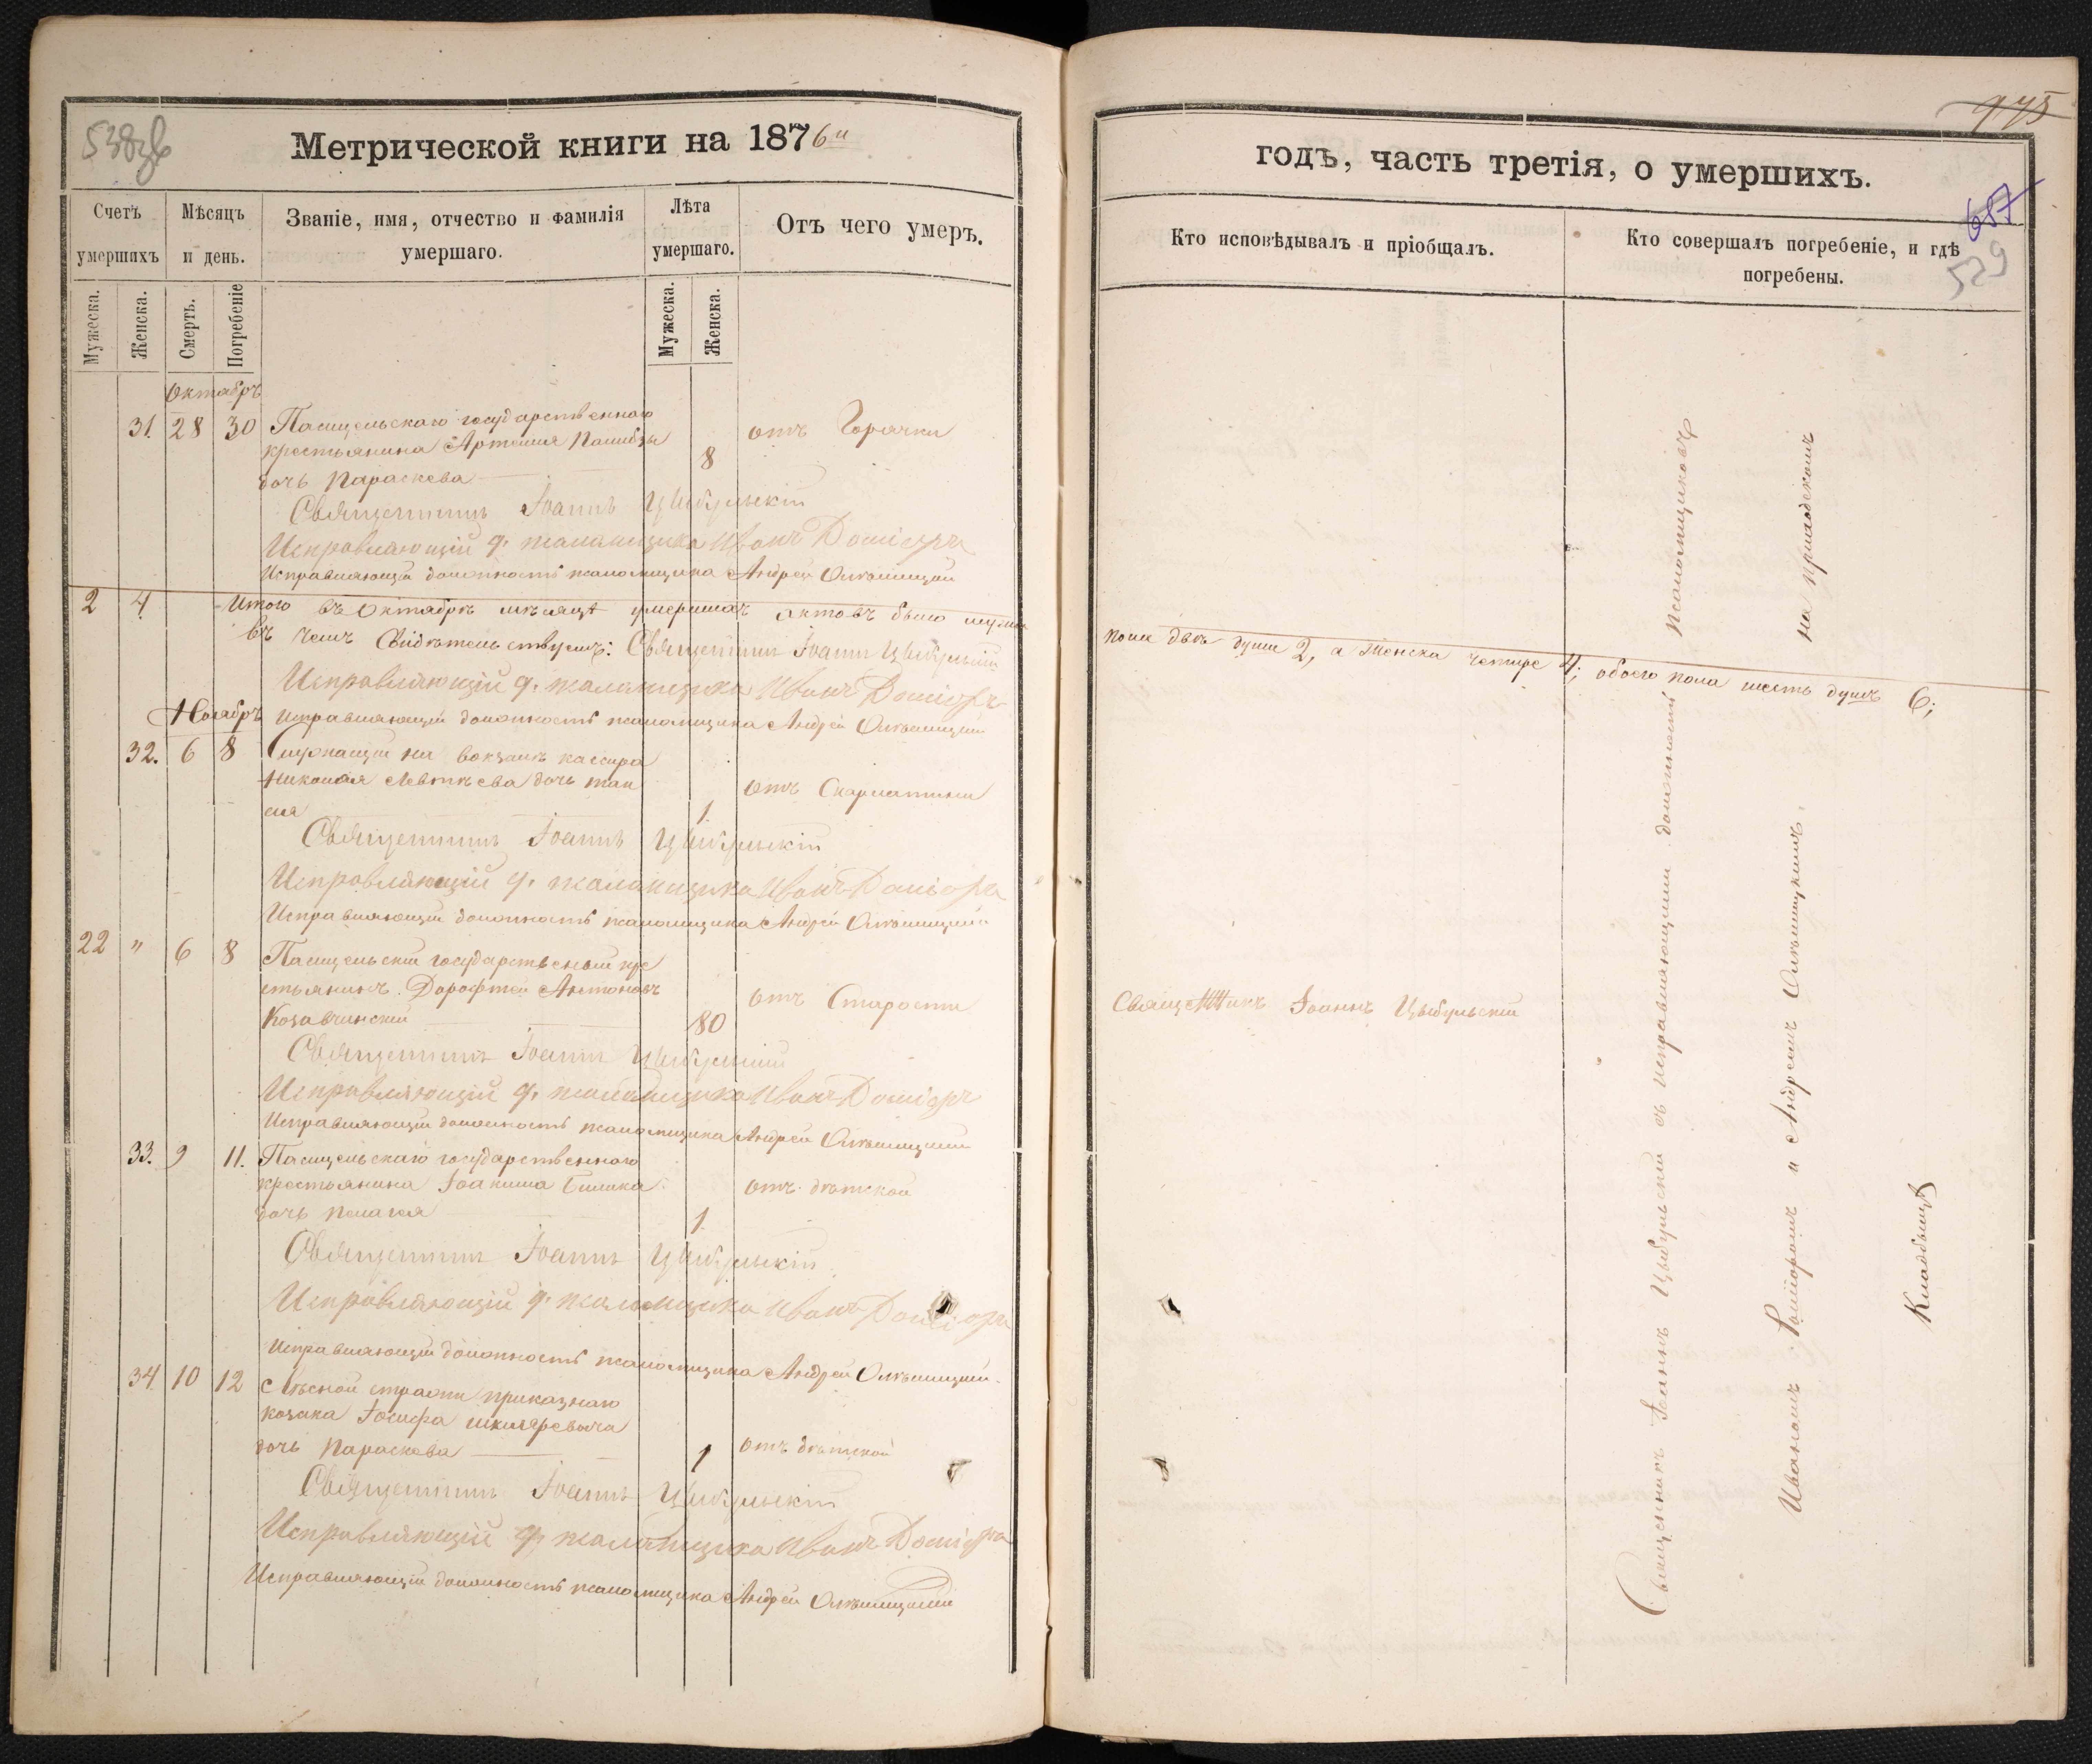 538зв
Метрической книги на 1876й
Счетъ умершихъ
Мѣсяцъ и день.
Званіе, имя, отчество и фамилія умершаго.
Лѣта умершаго.
Отъ чего умеръ.
Мужеска.
Женска.
Смерть.
Погребеніе
Мужеска.
Женска.
Октябрь
31. 28 30 государственного отъ Горячки
крестьянина Артемия 8
дочь Параскева
Священникъ Іоаннъ Цыбульскій
Исправляющій д. псаломщика Иванъ
Исправляющій должность псаломщика Андрей
2 4 Итого въ Октябрѣ мѣсяцѣ умершихъ актовъ было мужеска
въ чемъ Свидѣтельствуемъ: Священникъ Іоаннъ Цыбульскій
Исправляющій д. псаломщика Иванъ
Ноябрь Исправляющій должность псаломщика Андрей
32. 6 8 Служащаго на вокзалѣ кассира
Николая дочь Таи отъ Скарлатины
сія 1.
Священникъ Іоаннъ Цыбульскій
Исправляющій д. псаломщика Иванъ
Исправляющій должность псаломщика Андрей
22 " 6 8 государственый кре
стьянинъ Дорофтей Антоновъ отъ Старости
Козавчинскій 80
Священникъ Іоаннъ Цыбульскій
Исправляющій д. псаломщика Иванъ
Исправляющій должность псаломщика Андрей
33. 9 11. государственного
крестьянина Іоакима Билика отъ дѣтской
дочь Пелагея 1.
Священникъ Іоаннъ Цыбульскій
Исправляющій д. псаломщика Иванъ
Исправляющій должность псаломщика Андрей
34 10 12 Лѣсной стражи приказнаго
козака Іосифа Шкляревича
дочь Параскева 1 отъ дѣтской
Священникъ Іоаннъ Цыбульскій
Исправляющій д. псаломщика Иванъ
Исправляющій должность псаломщика Андрей
975
годъ, часть третія, о умершихъ.
687
529
Кто исповѣдывалъ и пріобщалъ.
Кто совершалъ погребеніе, и гдѣ погребены.
пола двѣ души 2, а Женска четыре 4; обоего пола шесть душъ 6;
Священникъ Іоаннъ Цыбульскій
Священникъ Іоаннъ Цыбульскій съ исправляющими должность псаломщиковъ
Иваномъ и Андреемъ на приходскомъ
Кладбищѣ